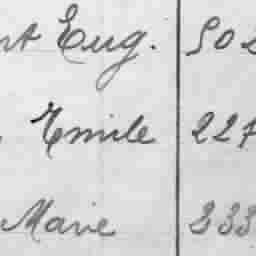 nt Eug. 502
Emile 227
Marie 333